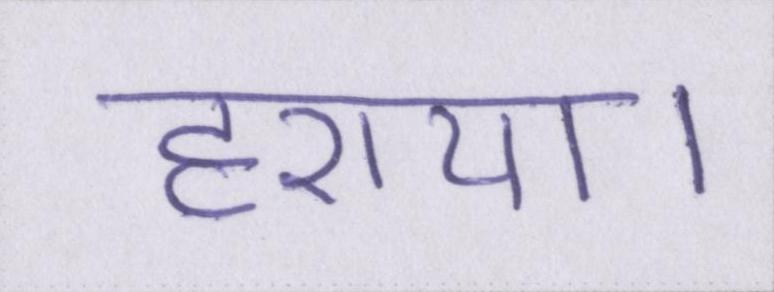 हराया।